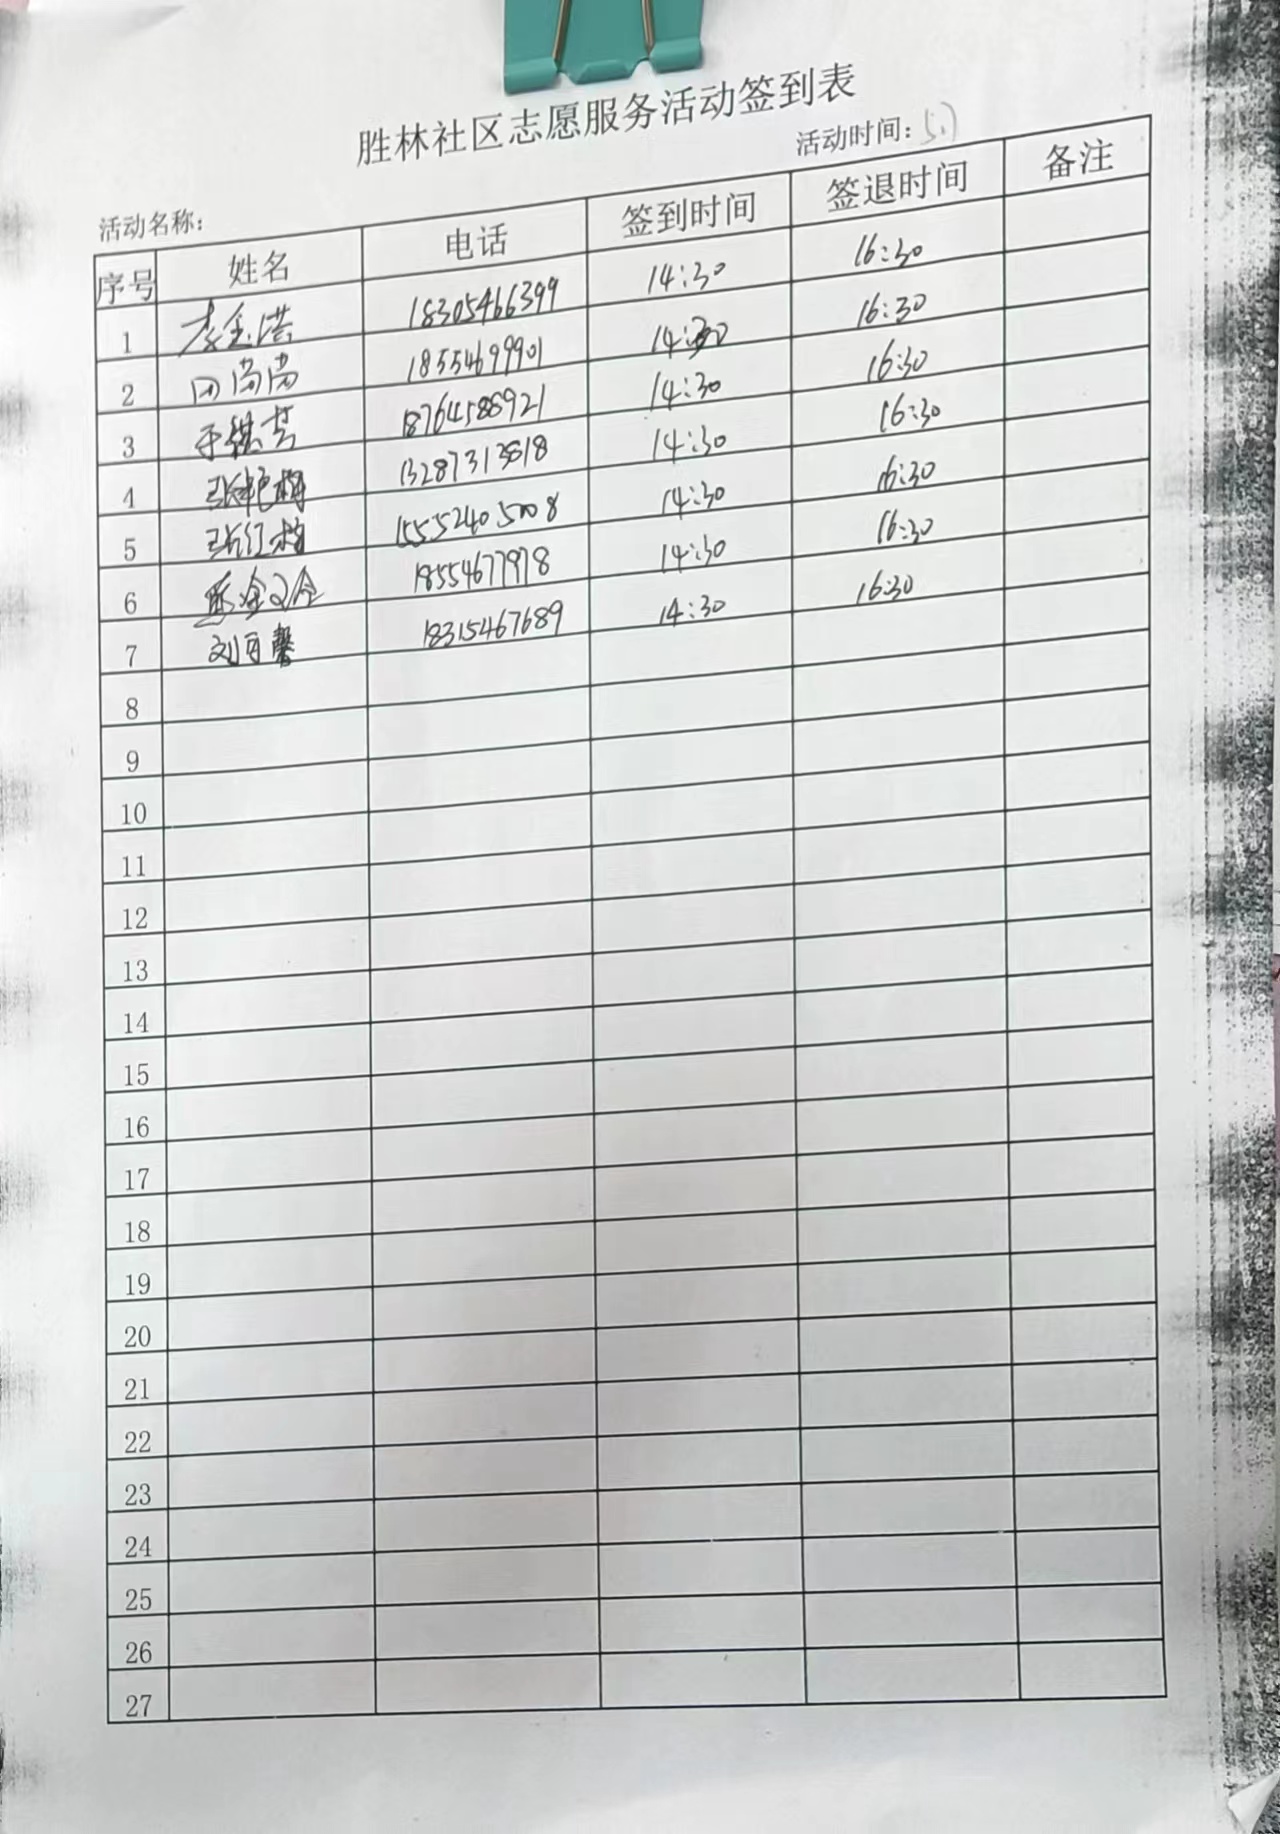 胜林社区志愿服务活动签到表
活动名称： 活动时间：5.7
序号 姓名 电话 签到时间 签退时间 备注
1 18305466399 14:30 16:30
2 18554699901 14:30 16:30
3 18764588921 14:30 16:30
4 张艳梅 13287313818 14:30 16:30
5 张红梅 15552405008 14:30 16:30
6 18554677978 14:30 16:30
7 刘月馨 18315467689 14:30 16:30
8
9
10
11
12
13
14
15
16
17
18
19
20
21
22
23
24
25
26
27